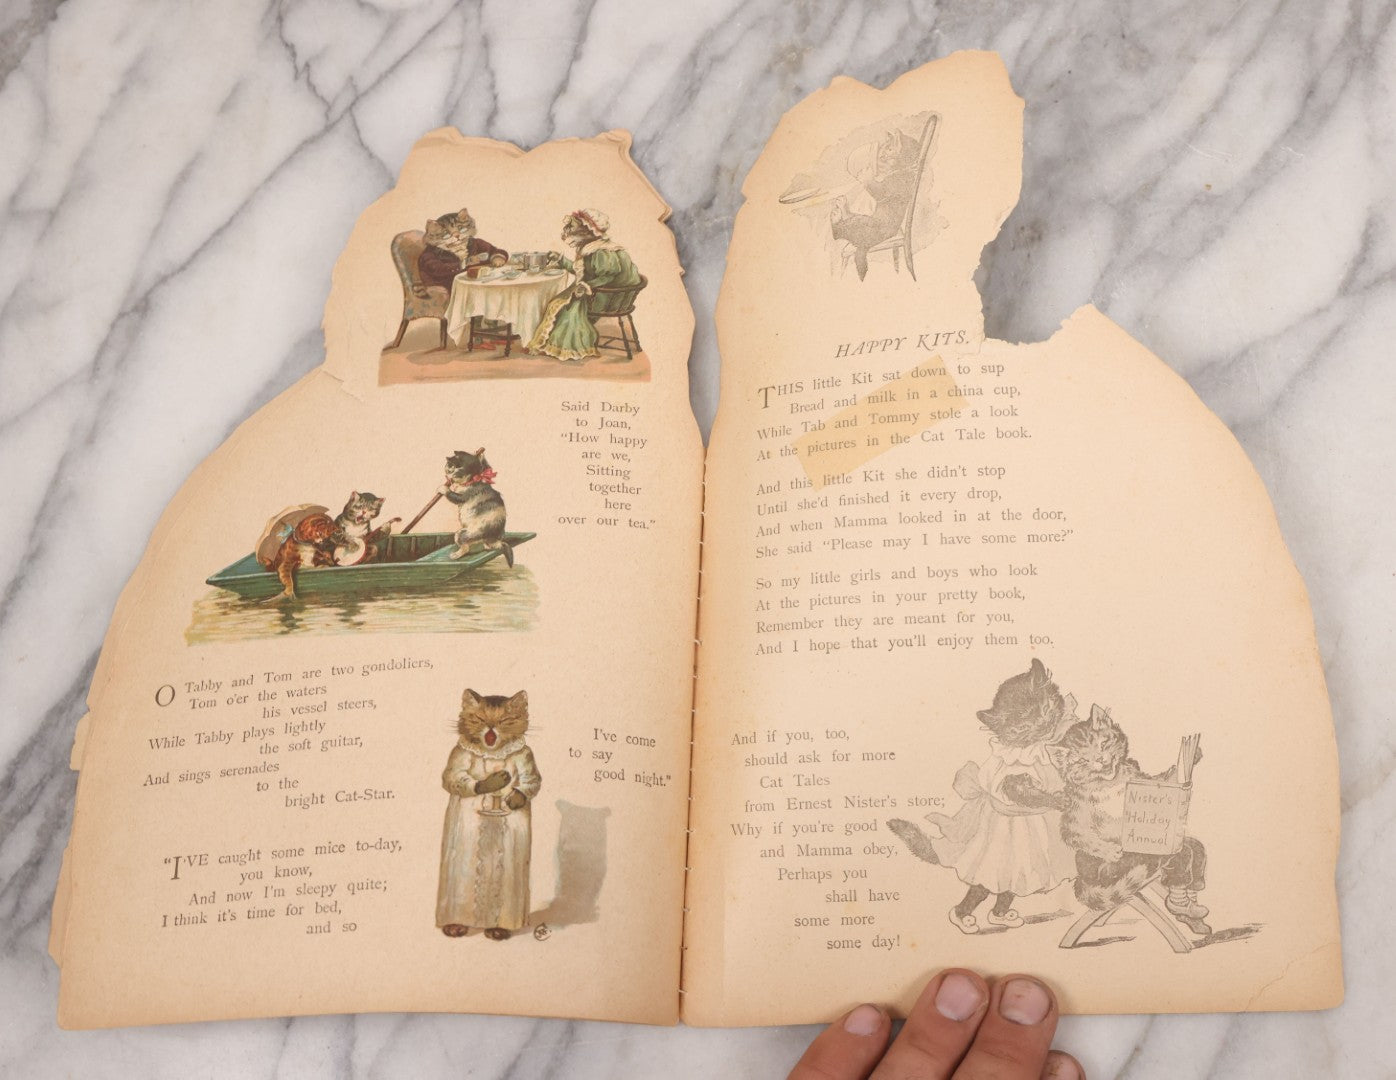 Said Darby
to Joan,
"How happy
are we,
Sitting
together
here
over our tea."
O Tabby and Tom are two gondoliers,
Tom o'er the waters
his vessel steers,
While Tabby plays lightly
the soft guitar,
And sings serenades
to the
bright Cat-Star.
"I'VE caught some mice to-day,
you know,
And now I'm sleepy quite;
I think it's time for bed,
and so
I've come
to say
good night."
HAPPY KITS.
THIS little Kit sat down to sup
Bread and milk in a china cup,
While Tab and Tommy stole a look
At the pictures in the Cat Tale book.
And this little Kit she didn't stop
Until she'd finished it every drop,
And when Mamma looked in at the door,
She said "Please may I have some more?"
So my little girls and boys who look
At the pictures in your pretty book,
Remember they are meant for you,
And I hope that you'll enjoy them too.
And if you, too,
should ask for more
Cat Tales
from Ernest Nister's store;
Why if you're good
and Mamma obey,
Perhaps you
shall have
some more
some day!
Nister's
Holiday
Annual